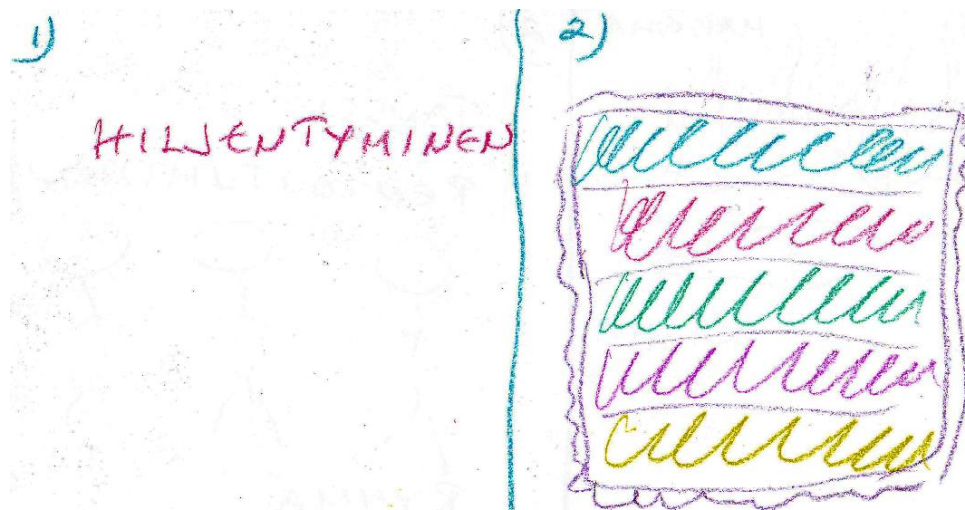 1)
HILJENTYMINEN
2)